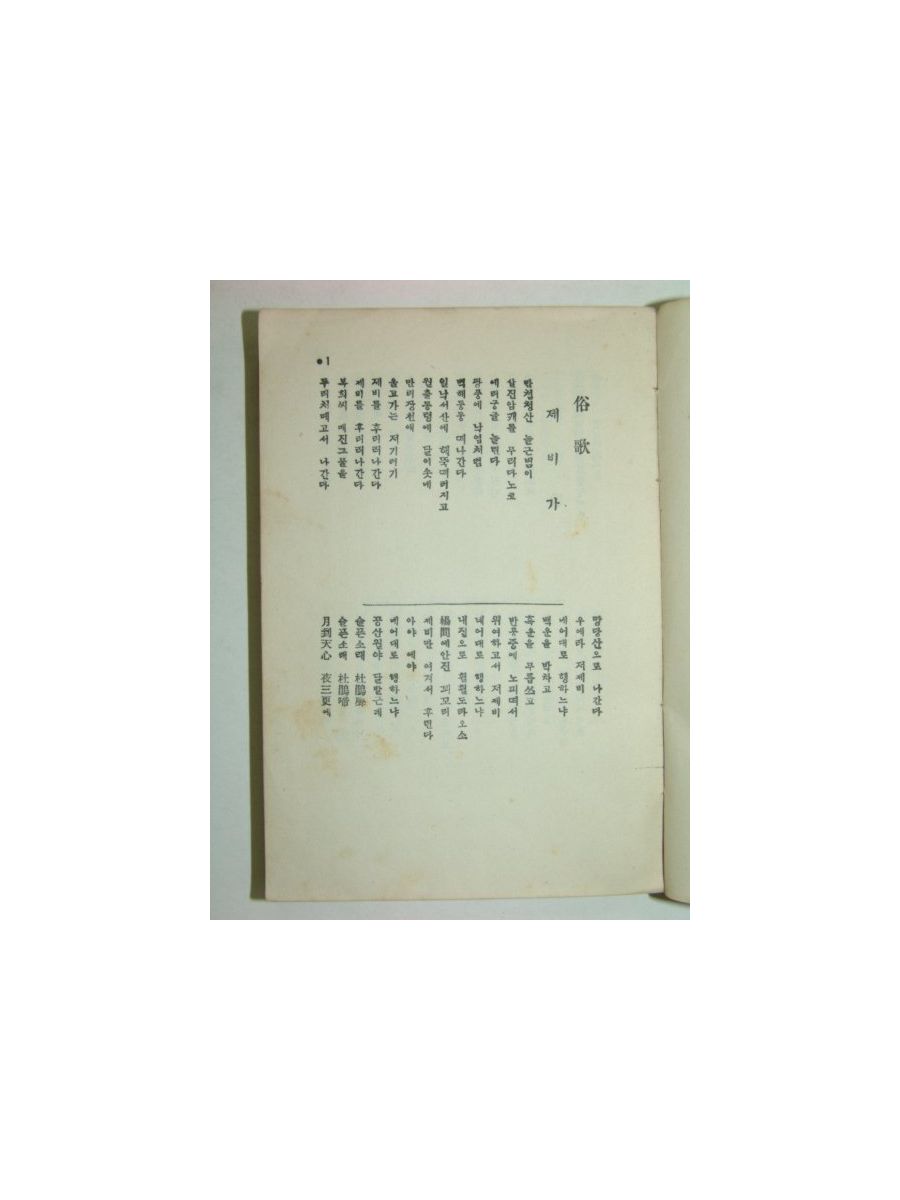 俗歌
제비가
만첩청산 늘근범이
살진암캐를 무러다노코
에러궁글 놀린다
광풍에 낙엽처럼
벽해둥둥 떠나간다
일낙서산에 해뚝떠러지고
월출동령에 달이솟네
만리장천에
울고가는 저기러기
제비를 후리러나간다
제비를 후리러나간다
복희씨 매진그물을
두러처메고서 나간다
망당산으로 나간다
우에라 저제비
네어대로 행하느냐
백운을 박차고
흑운을 무릅쓰고
반공중에 노피떠서
위여하고서 저제비
네어대로 행하느냐
내집으로 훨훨도라오소
楊間에안진 꾀꼬리
제비만 여겨서 후린다
아야 에야
네어대로 행하느냐
공산월야 달발근데
슬픈소래 杜鵑聲
슬픈소래 杜鵑啼
月到天心 夜三更에
●1